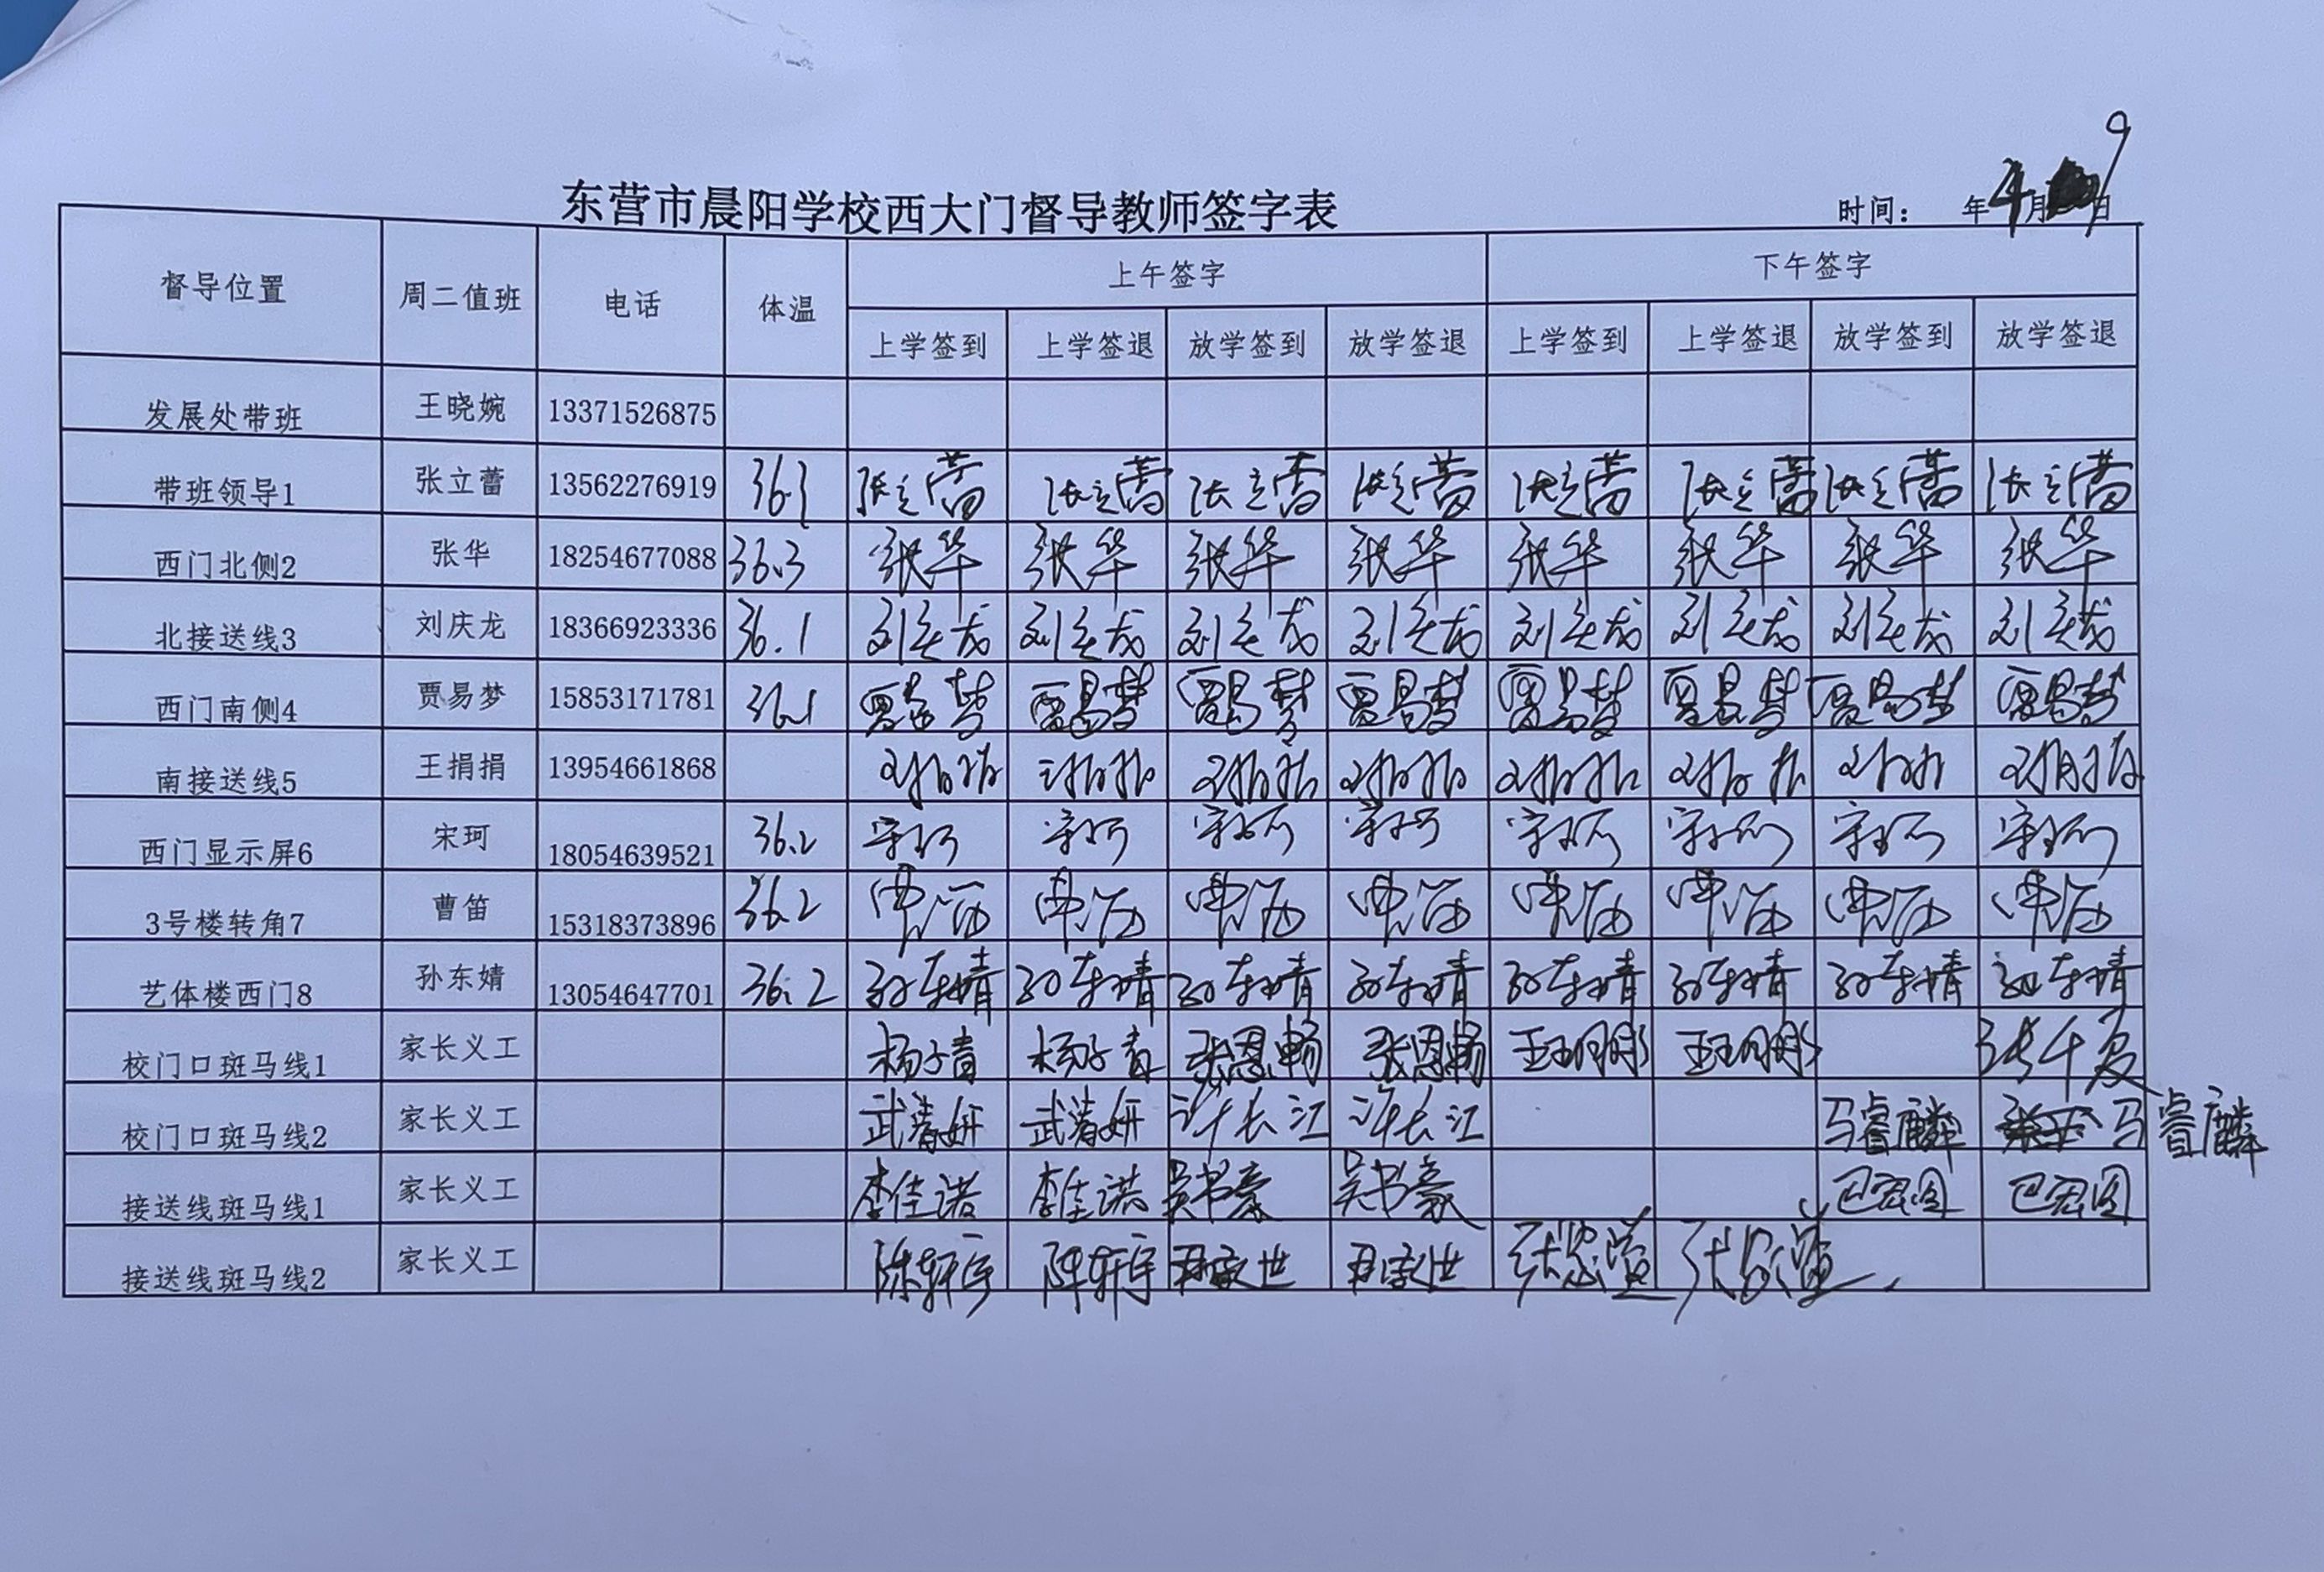 东营市晨阳学校西大门督导教师签字表
时间： 年4月9日
督导位置 周二值班 电话 体温 上午签字 下午签字
上学签到 上学签退 放学签到 放学签退 上学签到 上学签退 放学签到 放学签退
发展处带班 王晓婉 13371526875
带班领导1 张立蕾 13562276919 36.3 张立蕾 张立蕾 张立蕾 张立蕾 张立蕾 张立蕾 张立蕾 张立蕾
西门北侧2 张华 18254677088 36.3 张华 张华 张华 张华 张华 张华 张华 张华
北接送线3 刘庆龙 18366923336 36.1 刘庆龙 刘庆龙 刘庆龙 刘庆龙 刘庆龙 刘庆龙 刘庆龙 刘庆龙
西门南侧4 贾易梦 15853171781 36.1 贾易梦 贾易梦 贾易梦 贾易梦 贾易梦 贾易梦 贾易梦 贾易梦
南接送线5 王捐捐 13954661868 王捐捐 王捐捐 王捐捐 王捐捐 王捐捐 王捐捐 王捐捐 王捐捐
西门显示屏6 宋珂 18054639521 36.2 宋珂 宋珂 宋珂 宋珂 宋珂 宋珂 宋珂 宋珂
3号楼转角7 曹笛 15318373896 36.2 曹笛 曹笛 曹笛 曹笛 曹笛 曹笛 曹笛 曹笛
艺体楼西门8 孙东婧 13054647701 36.2 孙东婧 孙东婧 孙东婧 孙东婧 孙东婧 孙东婧 孙东婧 孙东婧
校门口斑马线1 家长义工 杨子青 杨子青 张恩畅 张恩畅 张千夏
校门口斑马线2 家长义工 武菁妍 武菁妍 许长江 许长江 马睿麟 马睿麟
接送线斑马线1 家长义工 李佳诺 李佳诺 吴书豪 吴书豪
接送线斑马线2 家长义工 陈轩宇 陈轩宇